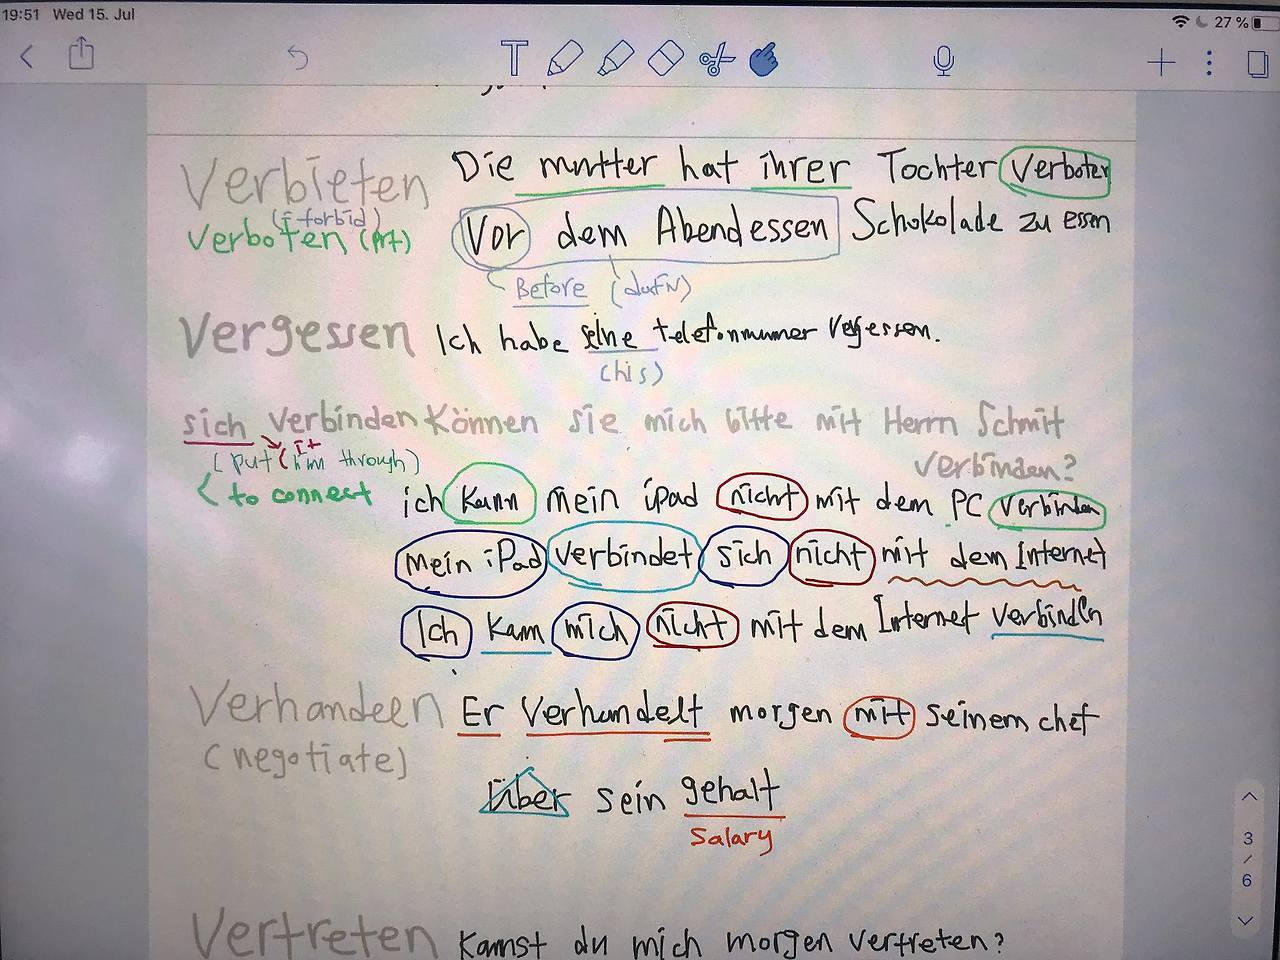 19:51 Wed 15. Jul
27 %
T
Verbieten Die mutter hat ihrer Tochter Verboten
(i forbid)
Verboten (Prt) Vor dem Abendessen Schokolade zu essen
Before (dativ)
Vergessen Ich habe seine telefonnummer Vergessen.
(his)
sich Verbinden Können sie mich bitte mit Herrn Schmit
it
(put (him through) verbinden?
< to connect ich kann mein ipad nicht mit dem PC verbinden
mein iPad verbindet sich nicht mit dem Internet
Ich kann mich nicht mit dem Internet verbinden
Verhandeln Er Verhandelt morgen mit seinem chef
(negotiate)
Über sein gehalt
Salary
Vertreten Kannst du mich morgen vertreten?
3
/
6